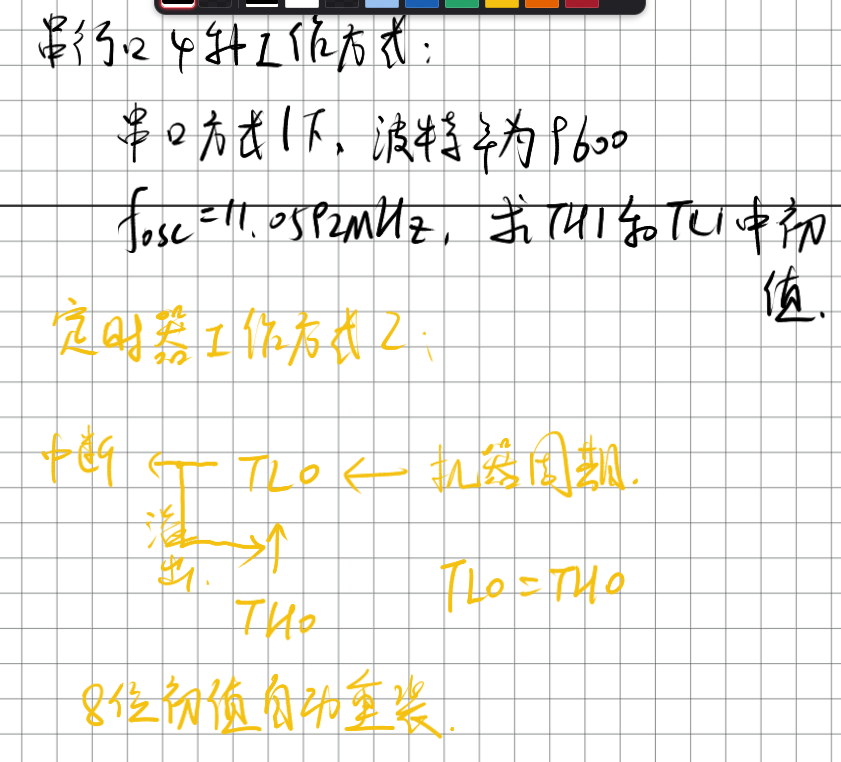 串行口4种工作方式:
串口方式1下、波特率为9600
fosc=11.0592MHz, 求TH1和TL1中初值.
定时器工作方式2:
中断 ← TL0 ← 机器周期.
溢出.
↑
TH0
TL0=TH0
8位初值自动重装.